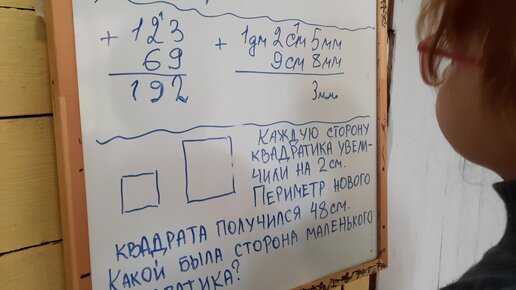 1
+ 123
69
192
1
+ 1дм 2см 5мм
9см 8мм
3мм
КАЖДУЮ СТОРОНУ
КВАДРАТИКА УВЕЛИ-
ЧИЛИ НА 2 СМ.
ПЕРИМЕТР НОВОГО
КВАДРАТА ПОЛУЧИЛСЯ 48 СМ.
КАКОЙ БЫЛА СТОРОНА МАЛЕНЬКОГО